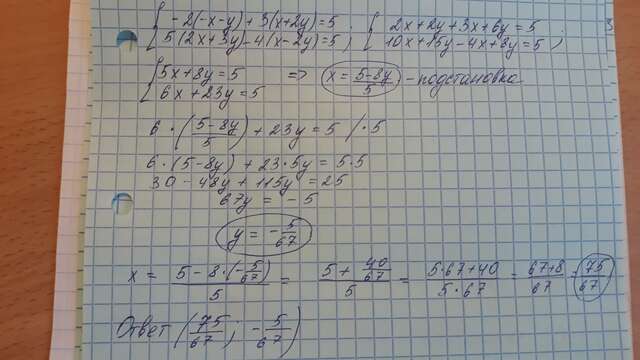 { -2(-x-y)+3(x+2y)=5 { 2x+2y+3x+6y=5
5(2x+3y)-4(x-2y)=5 ; 10x+15y-4x+8y=5 ;
{ 5x+8y=5 => x = (5-8y)/5 - подстановка
6x+23y=5
6·((5-8y)/5)+23y=5 /·5
6·(5-8y)+23·5y=5·5
30-48y+115y=25
67y=-5
y=-5/67
x = (5-8·(-5/67))/5 = (5+40/67)/5 = (5·67+40)/(5·67) = (67+8)/67 = 75/67
Ответ (75/67; -5/67)